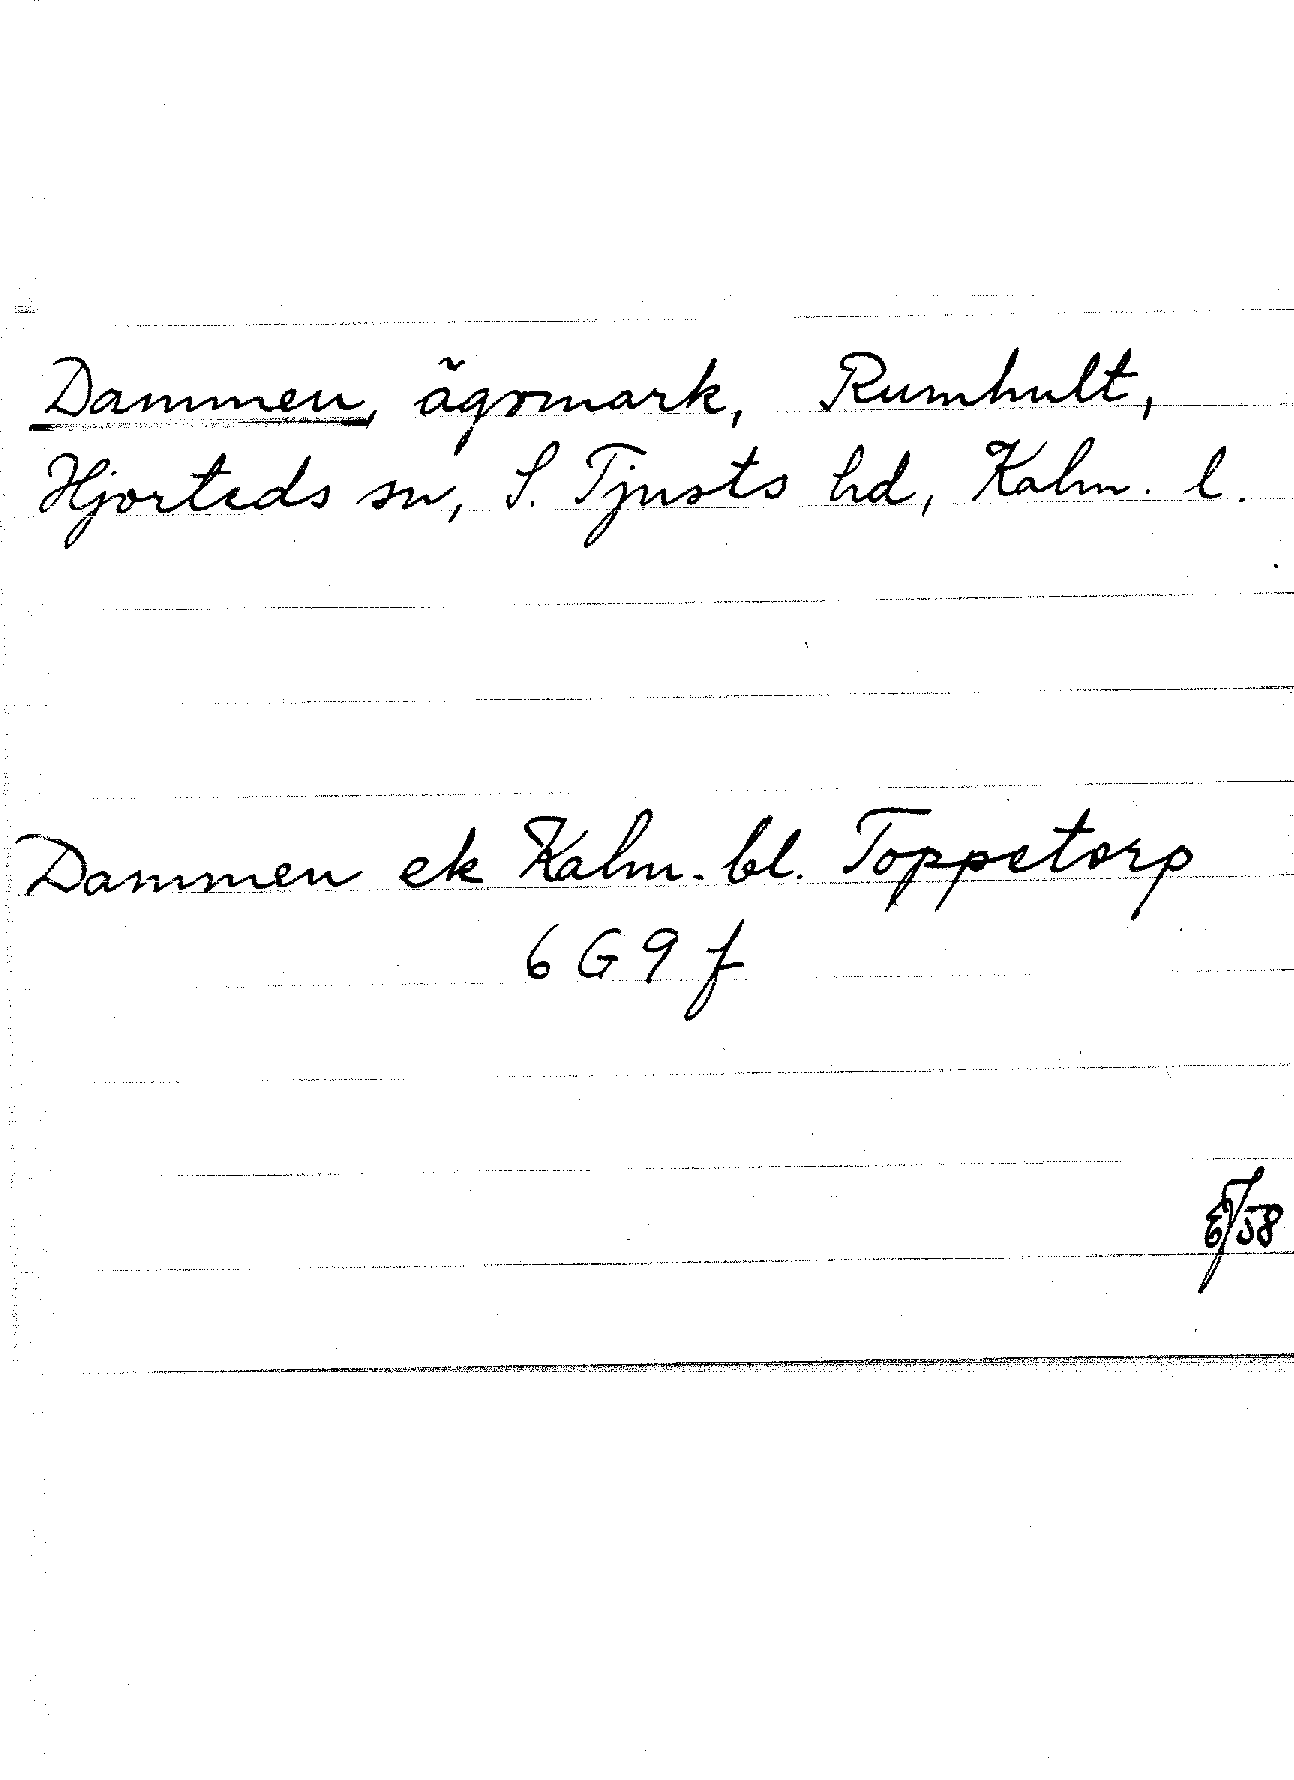 Dammen, ägomark, Rumhult,
Hjorteds sn, S. Tjusts hd, Kalm. l.
Dammen ek Kalm. bl. Toppetorp
6 G 9 f
/58